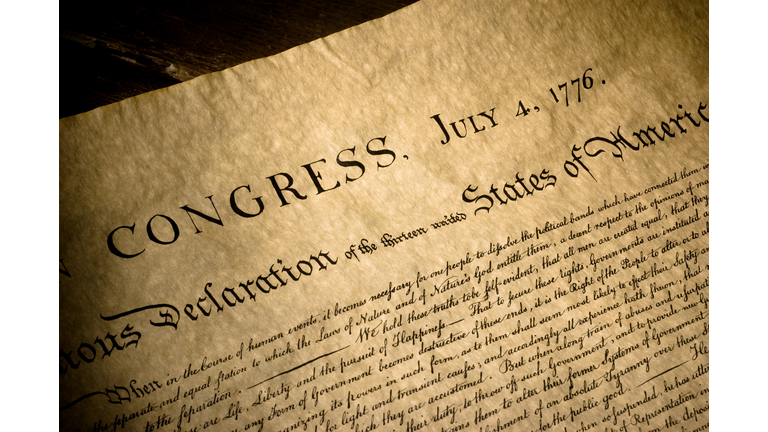 N CONGRESS, JULY 4, 1776.
ous Declaration of the thirteen united States of Americ
When in the Course of human events, it becomes necessary for one people to dissolve the political bands which have connected them
the separate and equal station to which the Laws of Nature and of Nature's God entitle them, a decent respect to the opinions of ma
to the separation. We hold these truths to be self-evident, that all men are created equal, that they
are Life, Liberty and the pursuit of Happiness.— That to secure these rights, Governments are instituted a
any Form of Government becomes destructive of these ends, it is the Right of the People to alter or to ab
anizing its powers in such form, as to them shall seem most likely to effect their Safety
for light and transient causes; and accordingly all experience hath shewn, that
which they are accustomed. But when a long train of abuses and usurpat
their duty, to throw off such Government, and to provide new
ains them to alter their former Systems of Government
lishment of an absolute Tyranny over these
for the public good. — He
so suspended, he has utter
of Representation in
from the depos